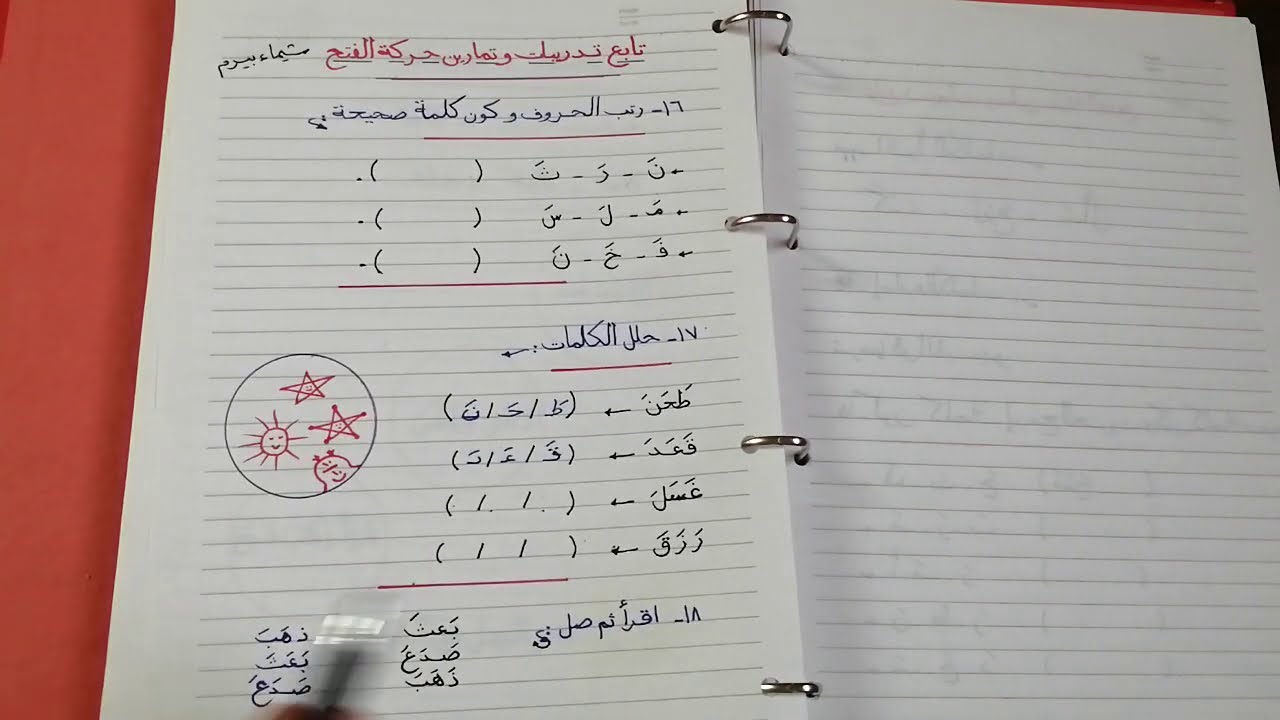 تابع تدريبات وتمارين حركة الفتح شيماء بيرم
١٦- رتب الحروف وكون كلمة صحيحة :
← نَ - رَ - ثَ ( ).
← مَـ - لَ - سَ ( ).
← فَـ - خَ - نَ ( ).
١٧- حلل الكلمات : ←
طَحَنَ ← (طَـ / حَـ / نَ)
قَعَدَ ← (قَـ / عَـ / دَ)
غَسَلَ ← ( / / )
رَزَقَ ← ( / / )
١٨- اقرأ ثم صل :
بَعثَ ذهَبَ
صَدَعَ بَعَثَ
ذَهَبَ صَدَعَ